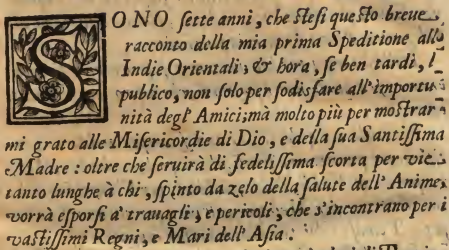 SONO ſette anni, che ſteſi queſto breue
racconto della mia prima Speditione alle
Indie Orientali; & hora, ſe ben tardi, l
publico, non ſolo per ſodisfare all'importu
nità degl' Amici; ma molto più per moſtrar
mi grato alle Miſericordie di Dio, e della ſua Santiſſima
Madre: oltre che ſeruirà di fedeliſſima ſcorta per vie
tanto lunghe à chi, ſpinto da zelo della ſalute dell' Anime,
vorrà eſporſi a' trauagli, e pericoli, che s'incontrano per i
vaſtiſſimi Regni, e Mari dell' Aſia: